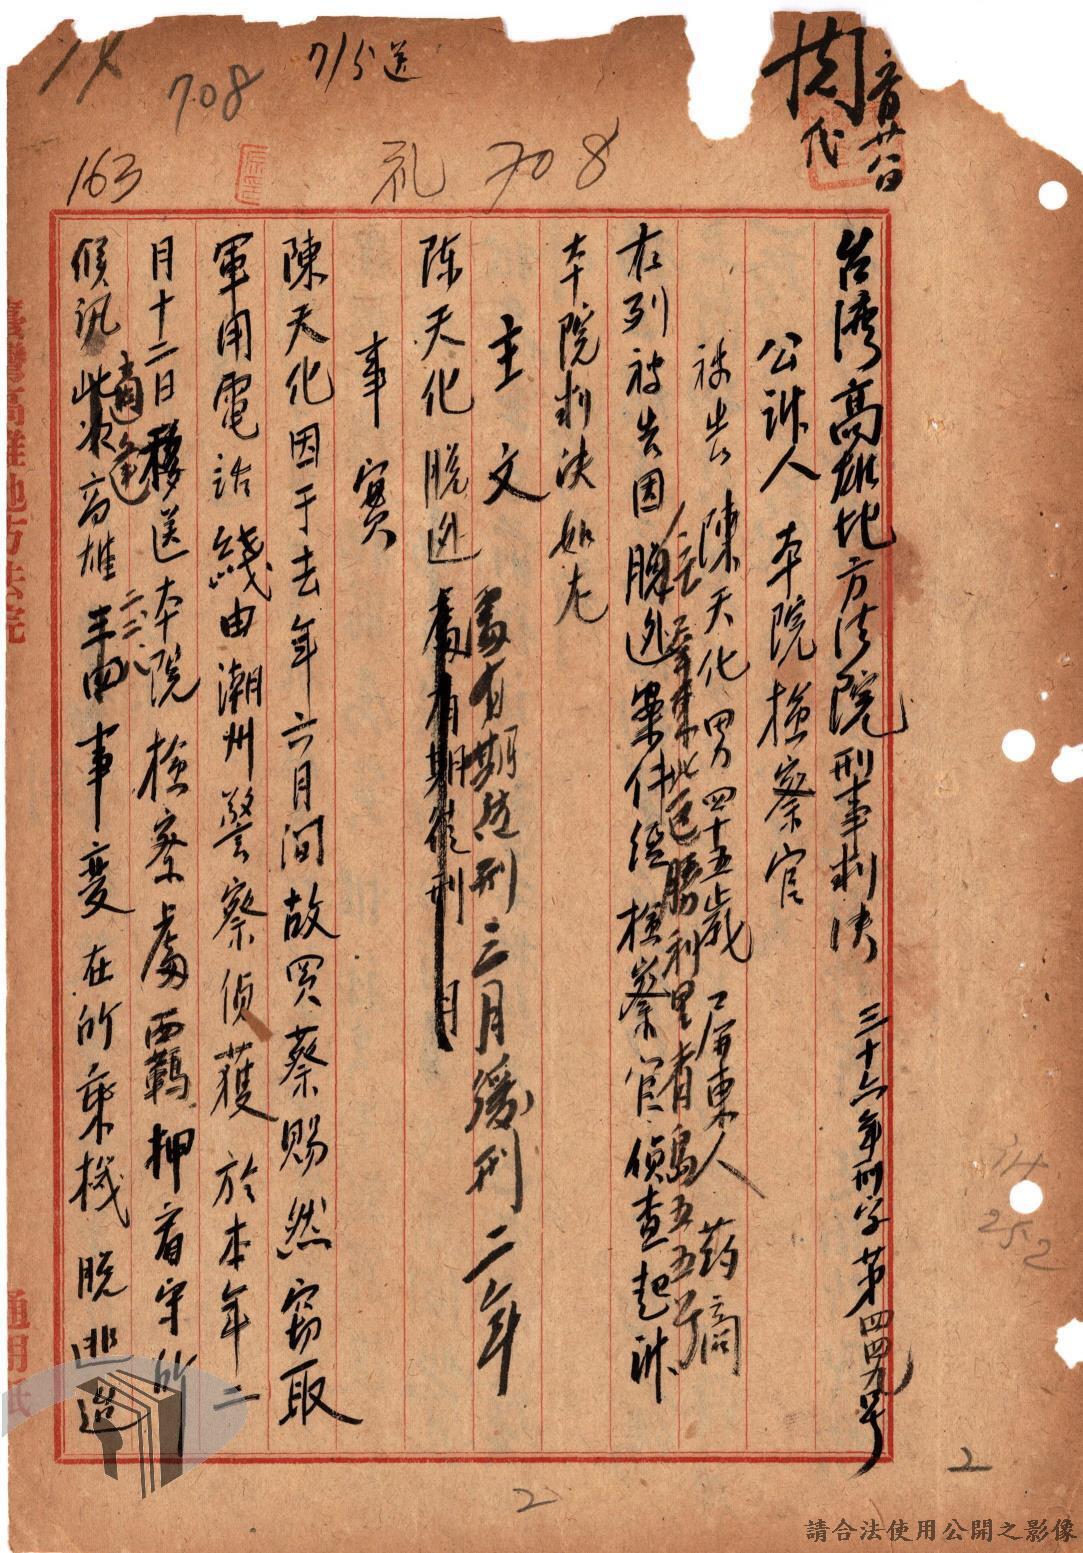 台湾高雄地方法院刑事判決 三十六年刑字第四四九号
公訴人 本院檢察官
被告 陳天化 男 四十五歲 屏東人 药商
住屏東市北區勝利里青島五五号
右列被告因脫逃案件経檢察官偵查起訴
本院判決如左
主文
陈天化脫逃處有期徒刑三月緩刑二年
處有期徒刑 月
事實
陳天化因于去年六月間故買蔡赐然窃取
軍用電話綫由潮州警察偵獲於本年二
月十二日移送本院檢察處西羈押看守所
候訊適逢高雄二二八事变在所乘機脫逃
708
7/5送
163
708
代
臺灣高雄地方法院
通用紙
252
2
2
請合法使用公開之影像